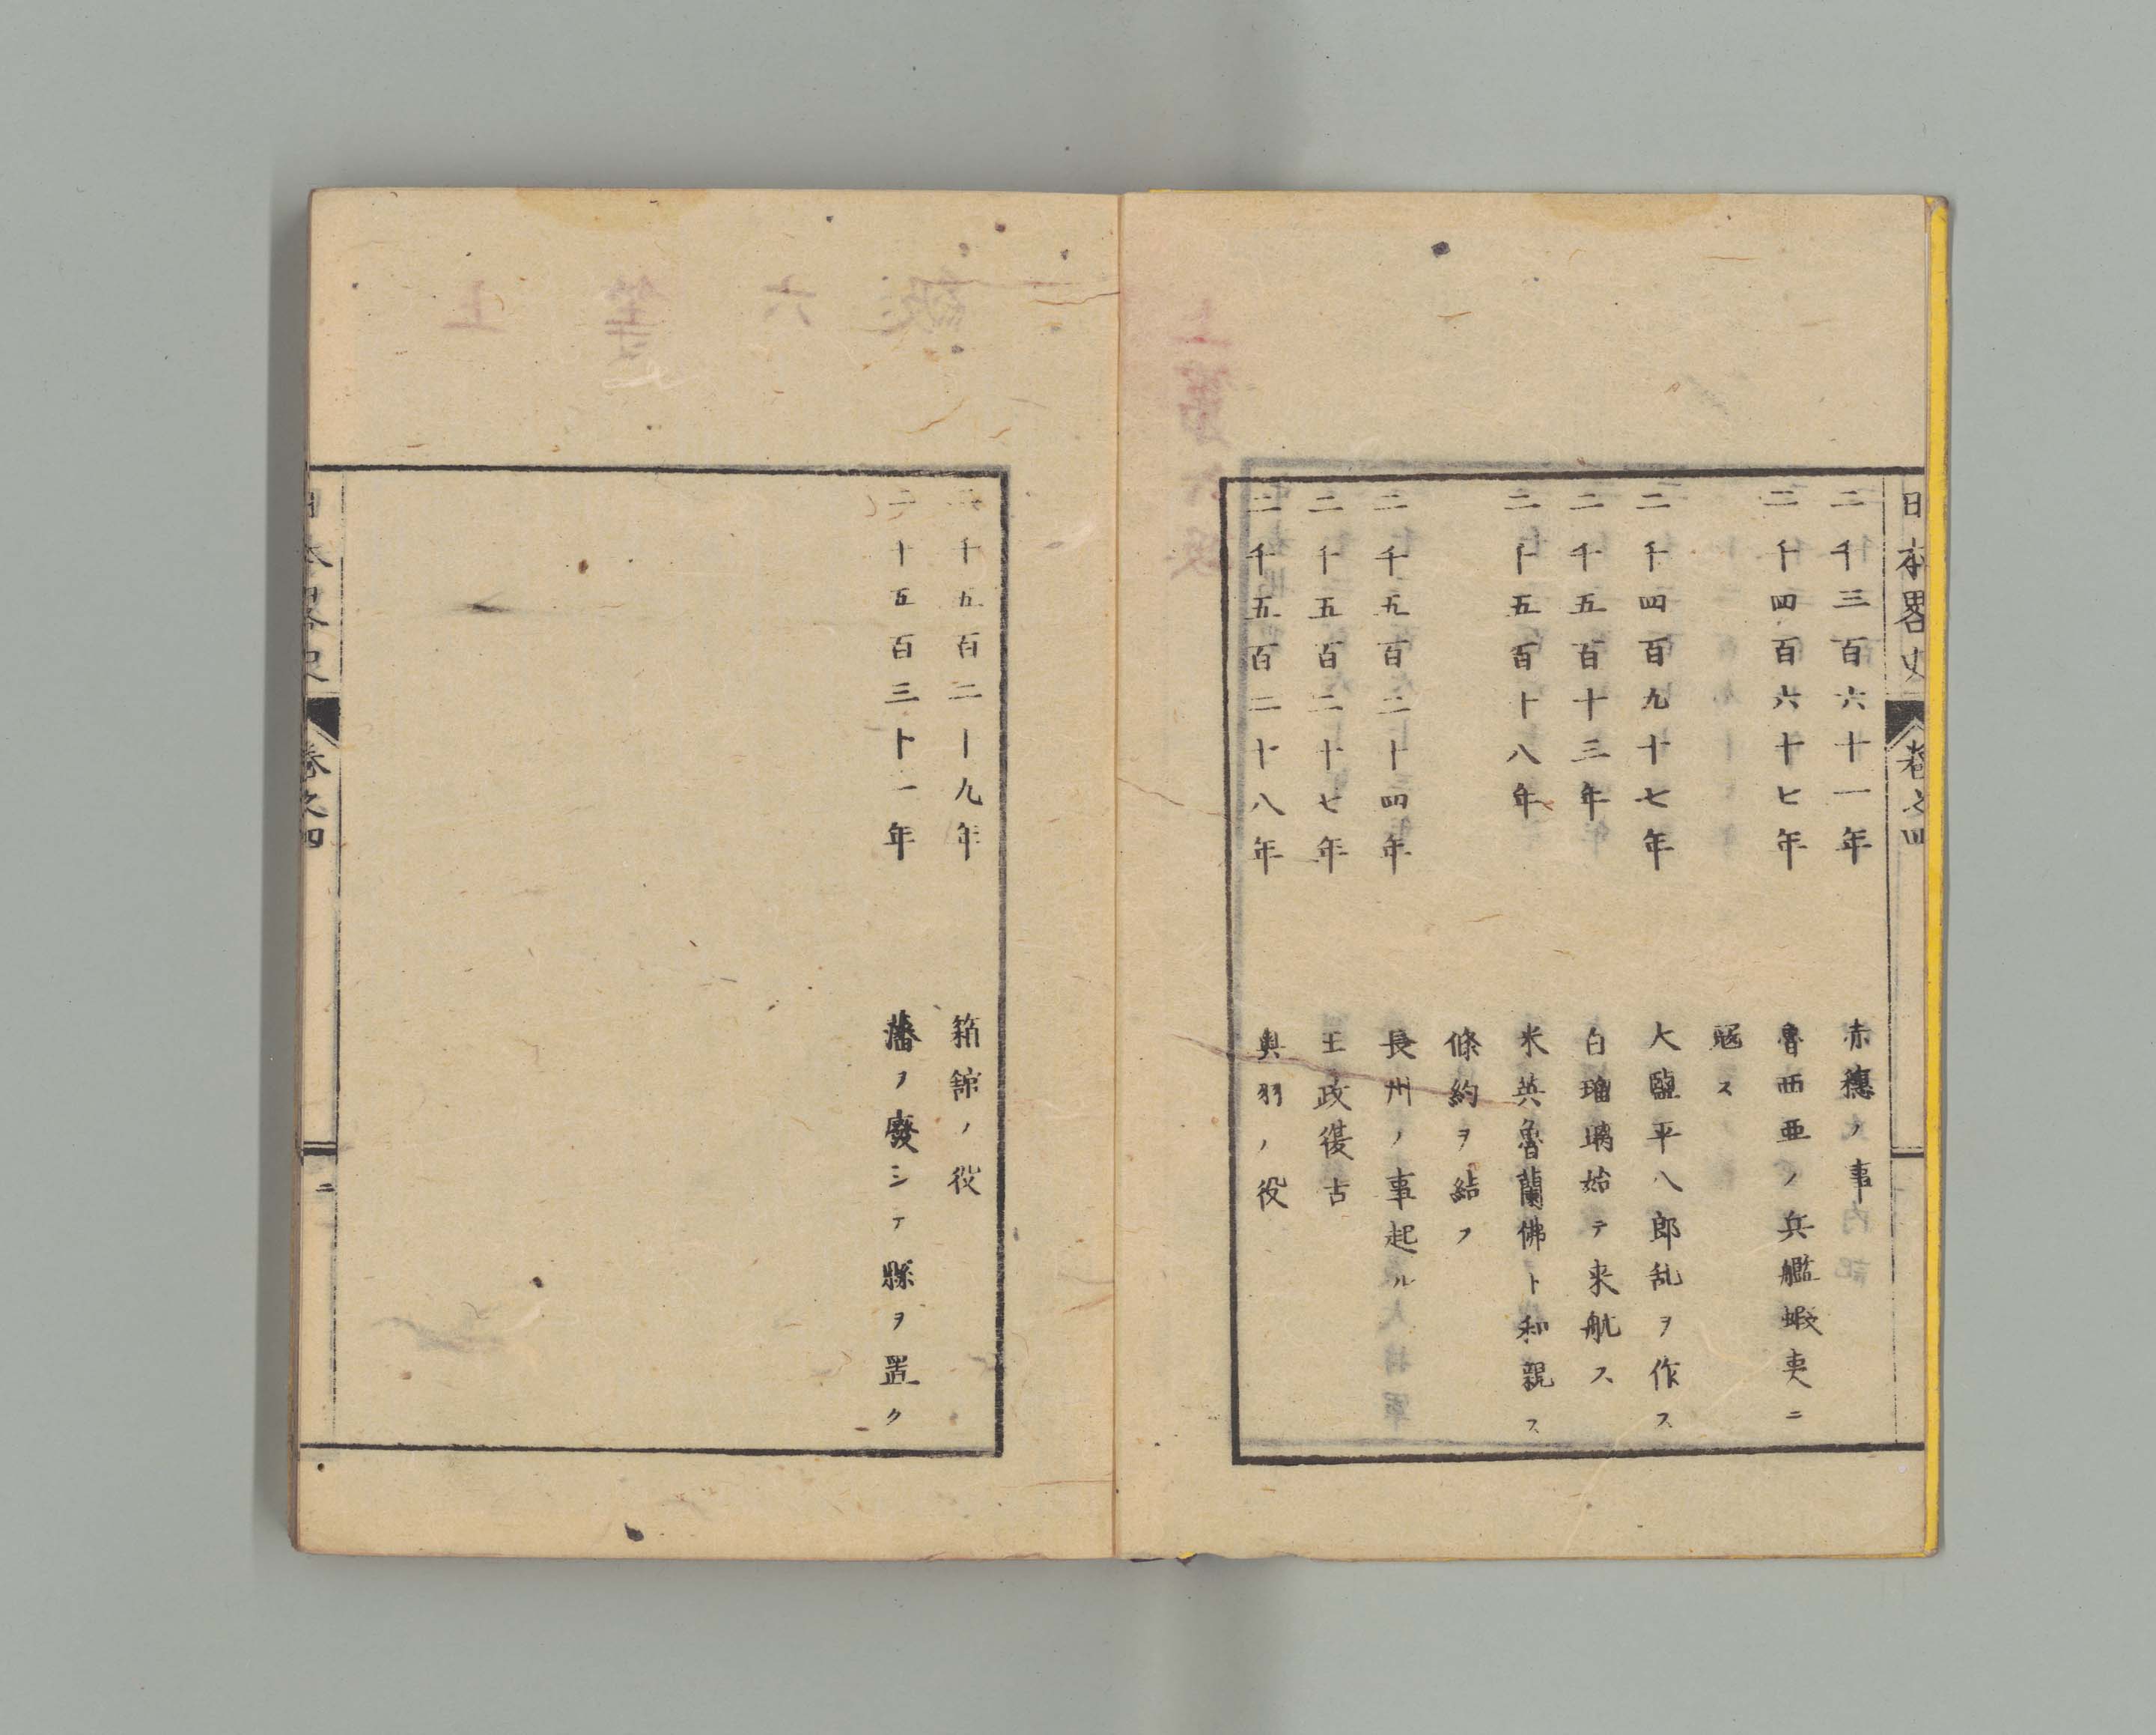 日本畧史 卷之四
二千三百六十一年 赤穗ノ事
二千四百六十七年 魯西亜ノ兵艦蝦夷ニ
寇ス
二千四百九十七年 大鹽平八郎乱ヲ作ス
二千五百十三年 白瑠璃始テ来航ス
二千五百十八年 米英魯蘭佛ト和親ス
條約ヲ結フ
二千五百二十四年 長州ノ事起ル
二千五百二十七年 王政復古
二千五百二十八年 奥羽ノ役
二千五百二十九年 箱舘ノ役
二千五百三十一年 藩ヲ廢シテ縣ヲ置ク
日本畧史 卷之四 二